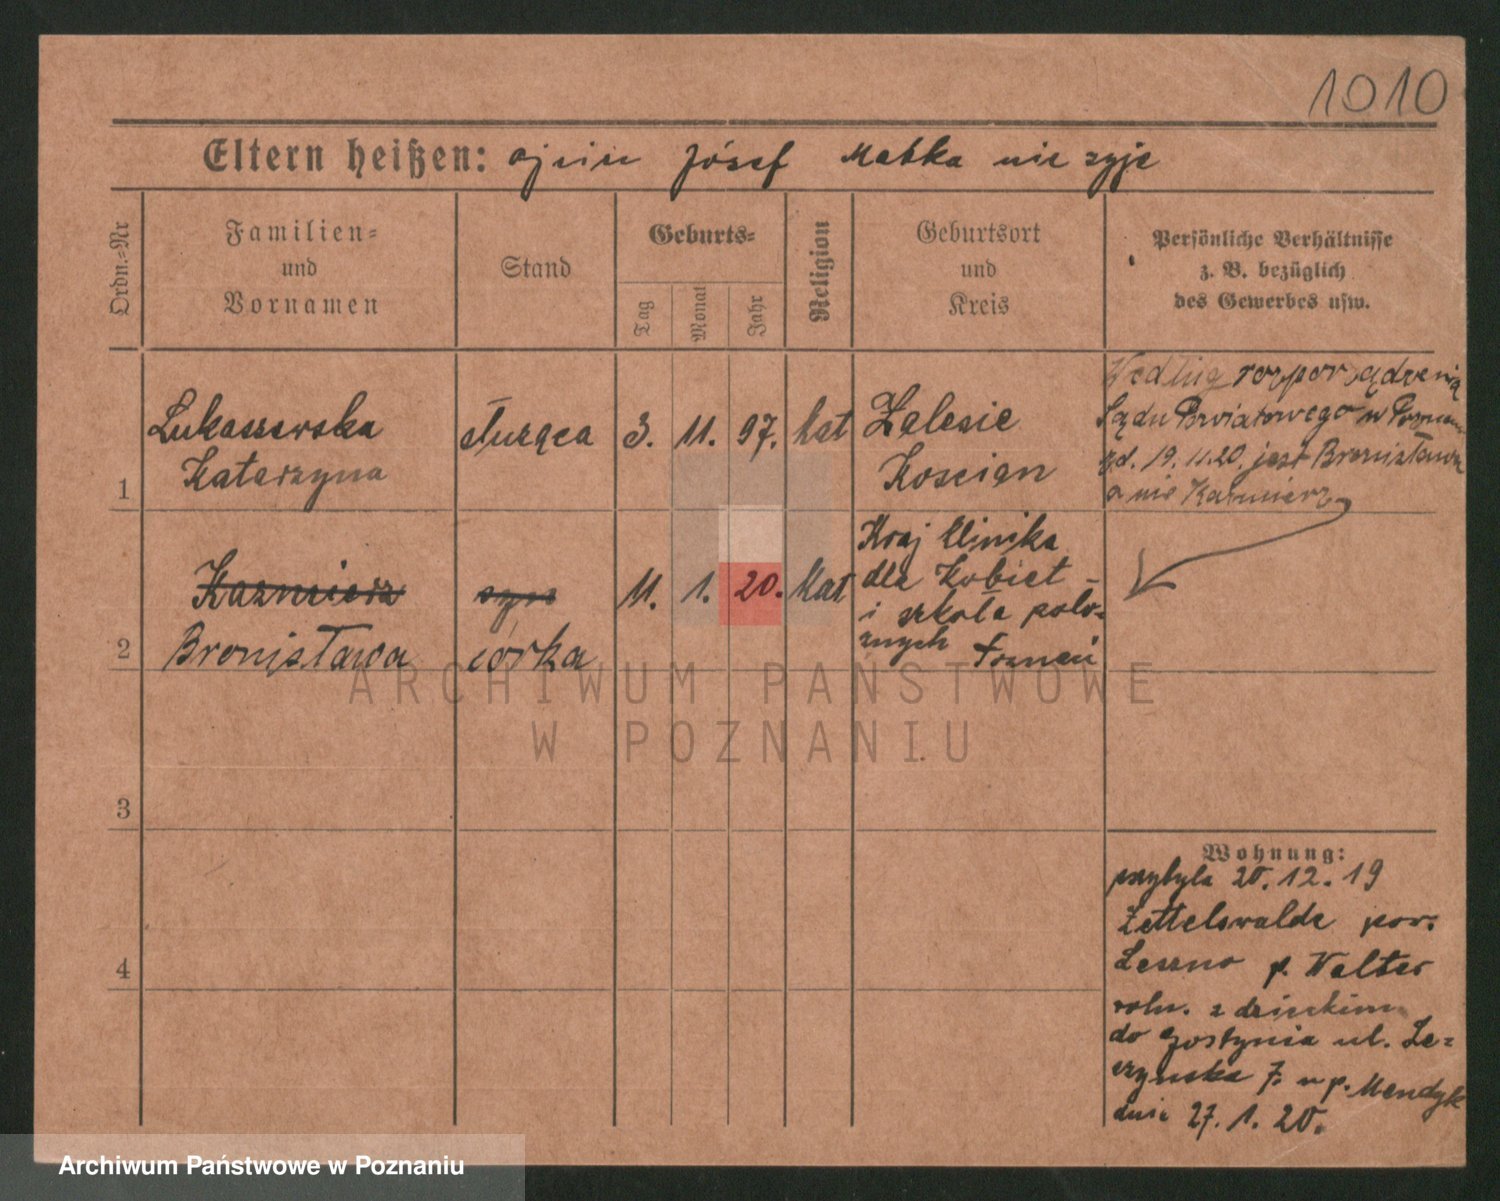 1010
Eltern heißen: ojciec Józef Matka nie żyje
Ordn.-Nr
Familien-
und
Vornamen
Stand
Geburts-
Tag
Monat
Jahr
Religion
Geburtsort
und
Kreis
Persönliche Verhältnisse
z. B. bezüglich
des Gewerbes usw.
1
Łukaszewska
Katarzyna
służąca
3. 11. 97.
kat
Zalesie
Koscian
Według rozporządzenia
Sądu Powiatowego w Poznaniu
z d. 19.11.20. jest Bronisława
a nie Kaźmierz
2
Kazmierz
Bronisława
syn
córka
11. 1. 20.
kat
Kraj Klinika
dla Kobiet -
i szkoła poło-
żnych Poznań
3
4
Wohnung:
przybyła 20.12.19
Zettelswalde pow.
Leszno p. Walter
roln. z dzieckiem
do Gostynia ul. Le-
szynska 7. u p. Mendyk
dnia 27.1.20.
ARCHIWUM PAŃSTWOWE
W POZNANIU
Archiwum Państwowe w Poznaniu